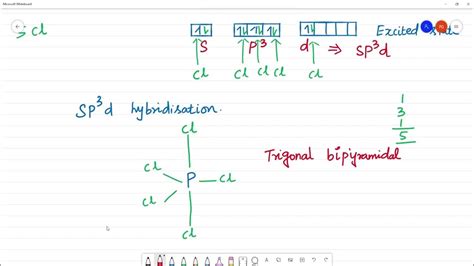 Microsoft Whiteboard
Cl
Excited
S
P³
d
⇒ SP³d
Cl
Cl Cl Cl
Cl
SP³d hybridisation.
1
3
1
5
Cl
Trigonal bipyramidal
Cl
P
Cl
Cl
Cl